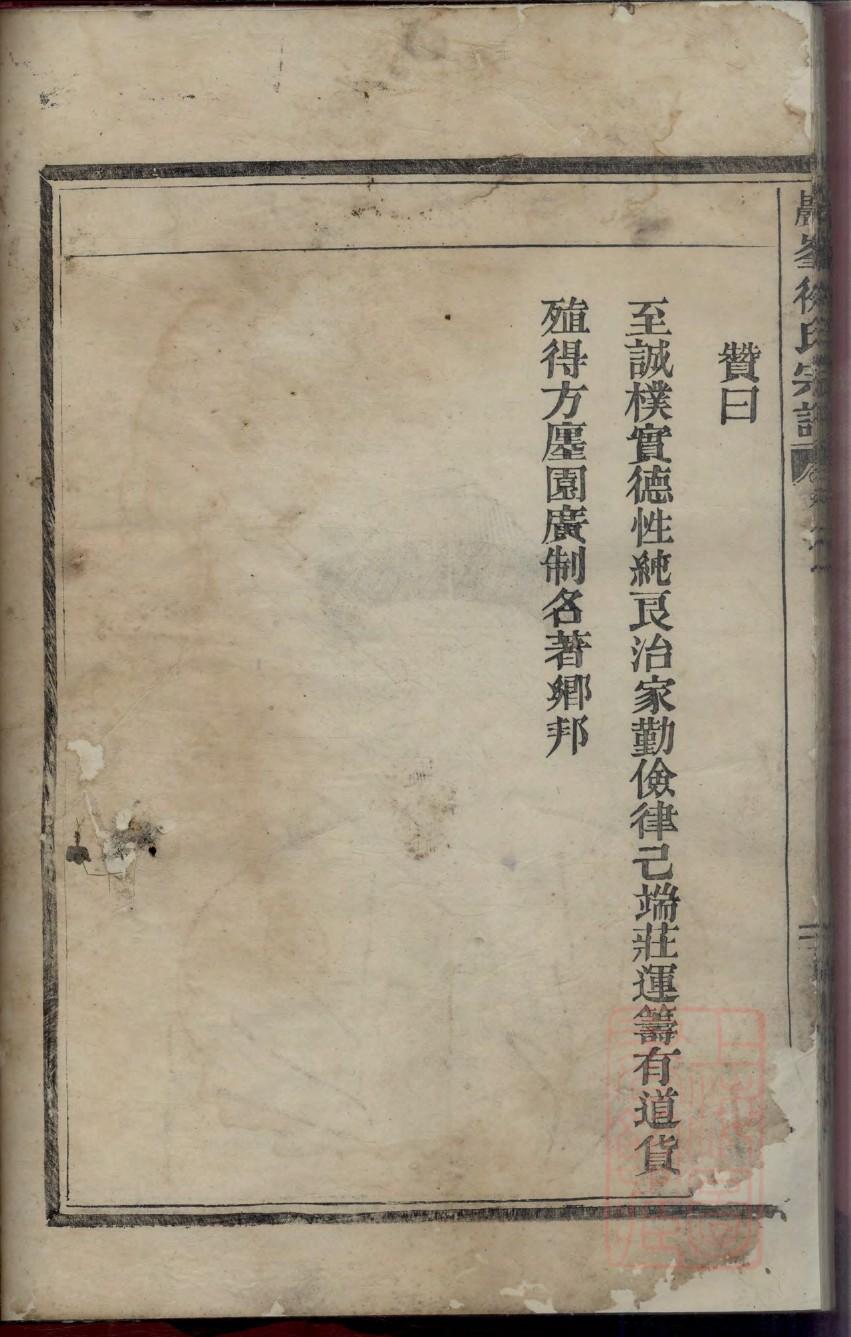 贊曰
至誠樸實德性純良治家勤儉律己端莊運籌有道貨
殖得方廛園廣制名著鄉邦
氏宗譜